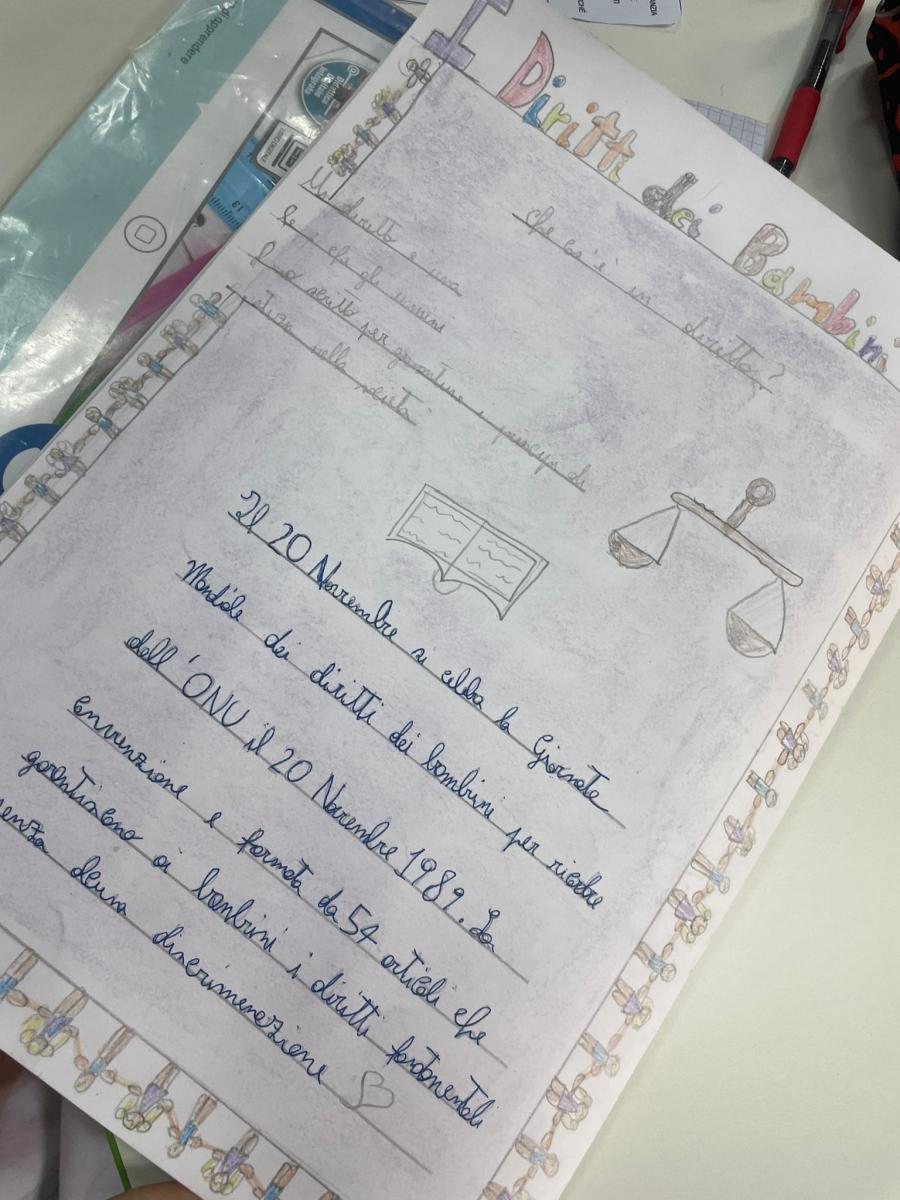 Diritti dei Bambini
Che cos'è un diritto?
Un diritto è una
che gli uomini
scritto per garantire i principi di
nella società
Il 20 Novembre si celba la Giornata
Mondiale dei diritti dei bambini per
dell'ONU il 20 Novembre 1989. La
e formata da 54 articoli che
garantiscono ai bambini i diritti
senza discrimenazione
di apprendere
Didattica Digitale Integrata
13